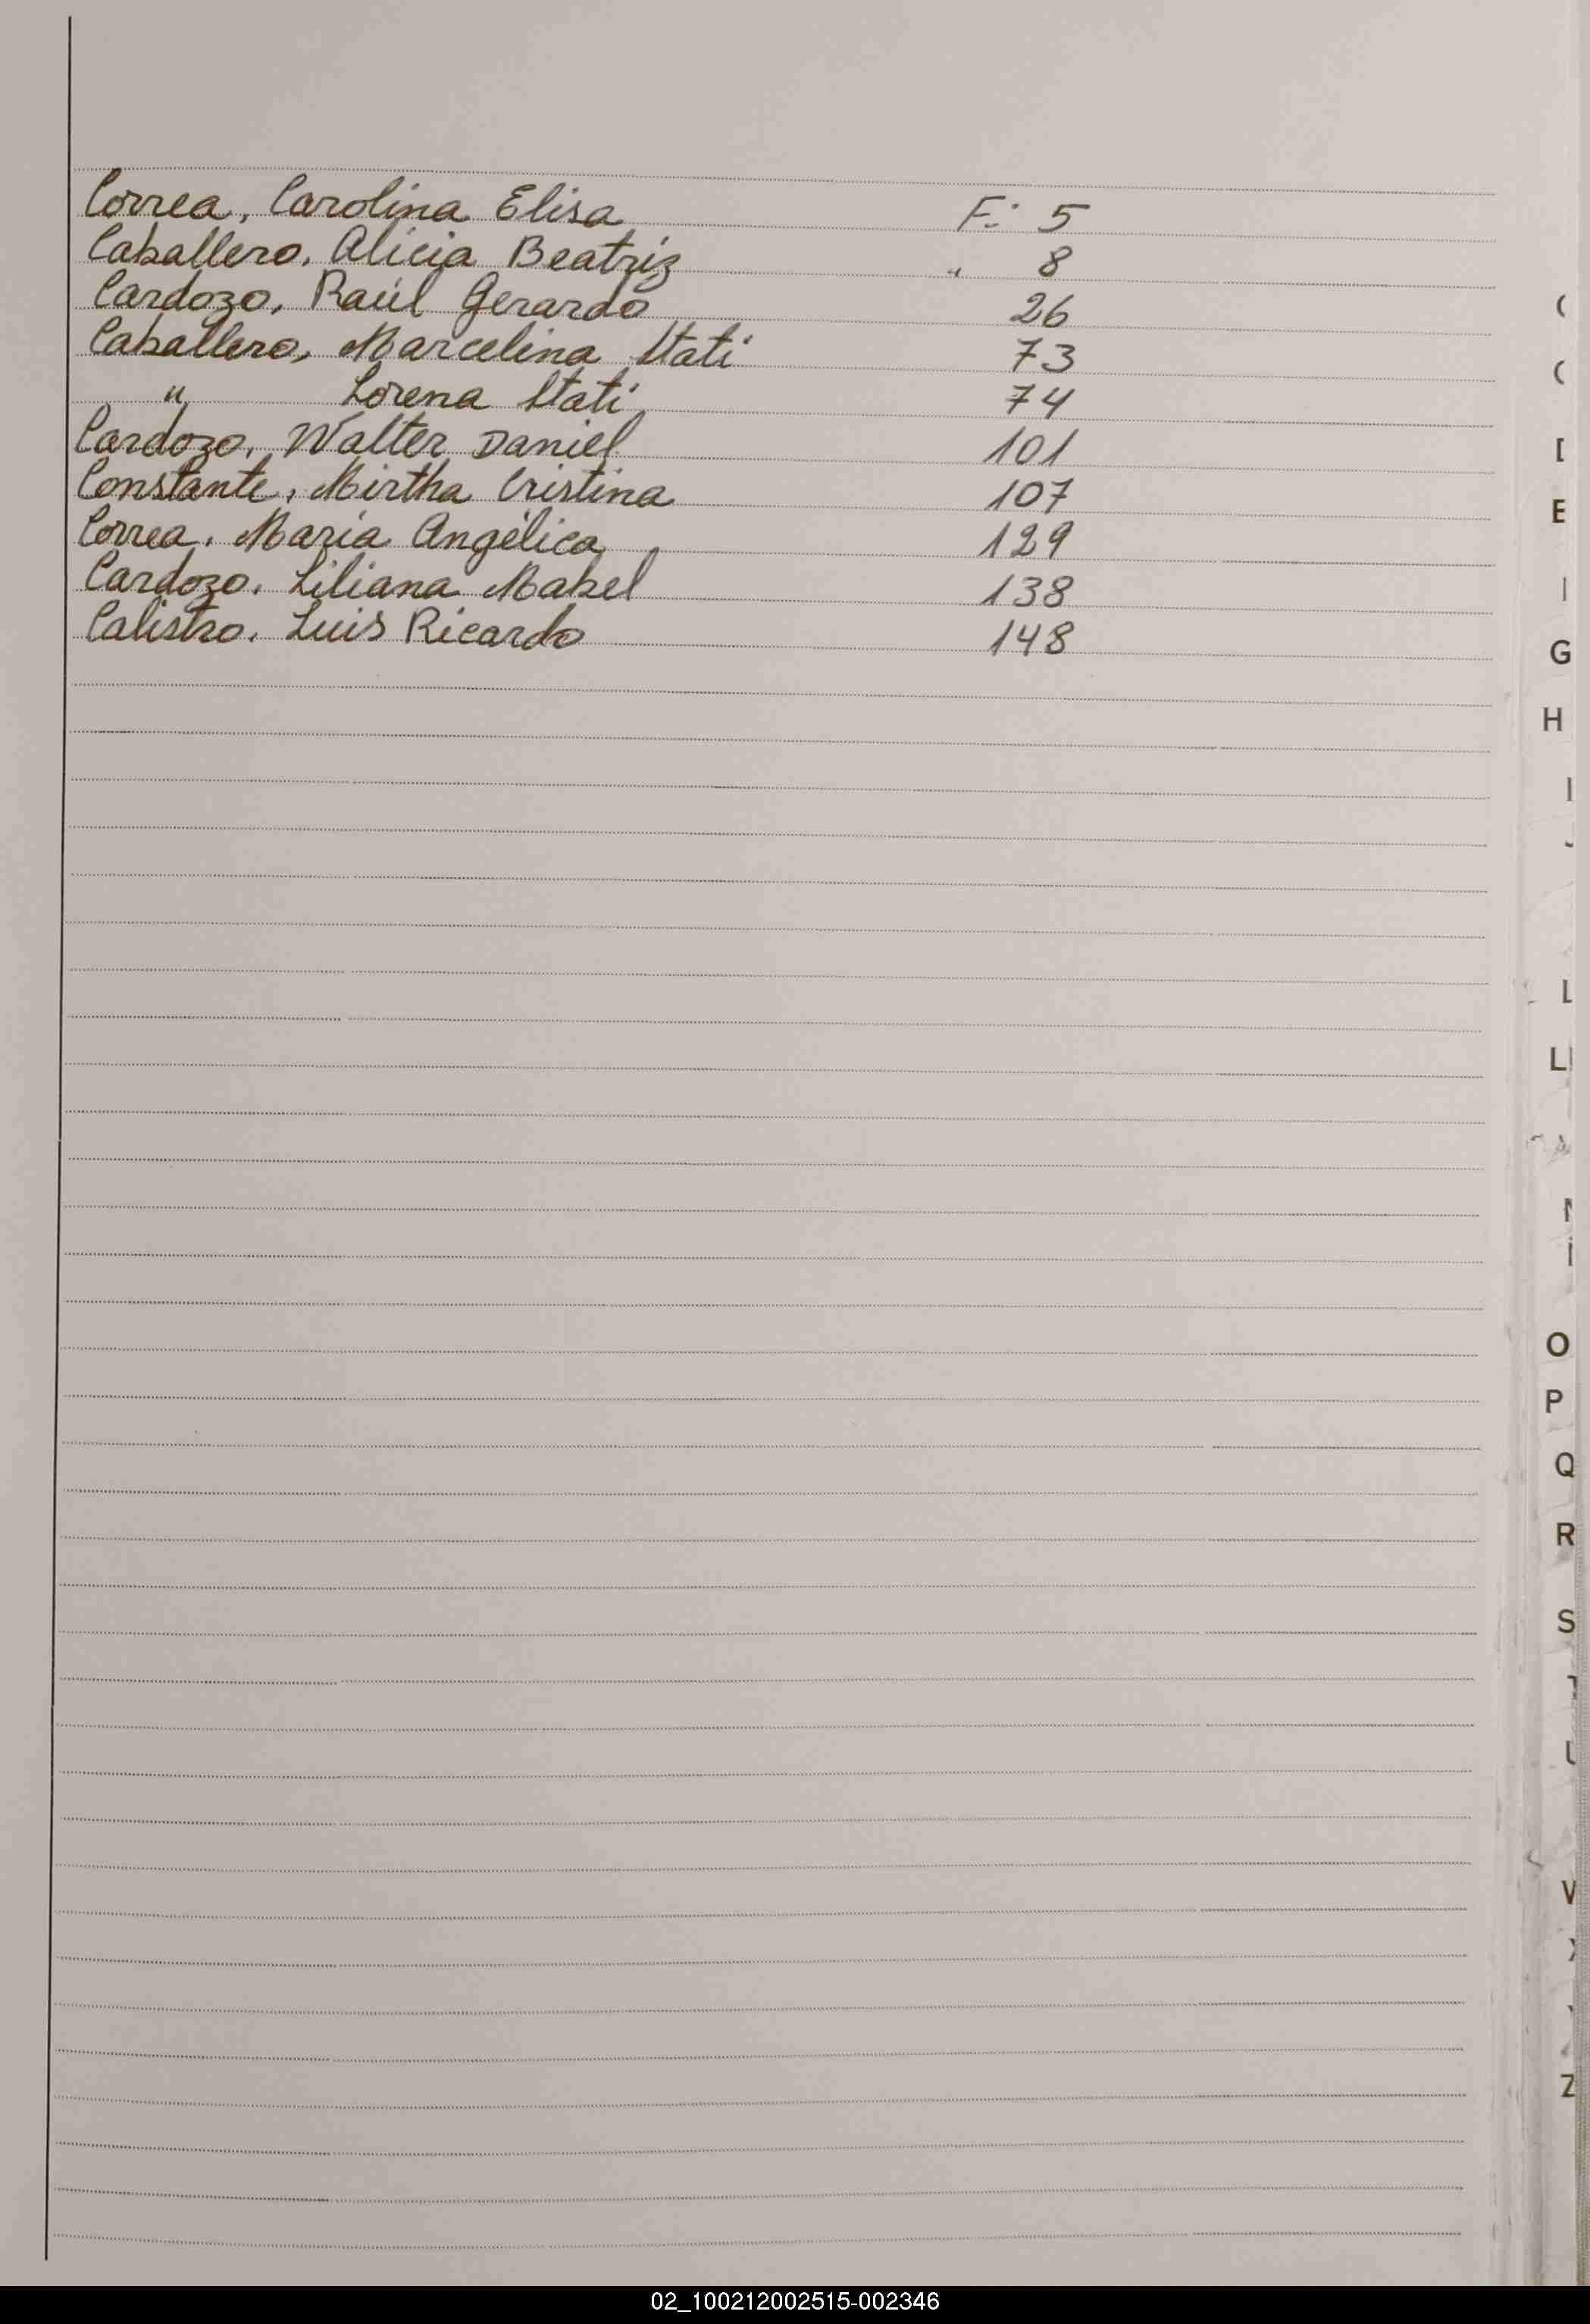 Correa, Carolina Elisa F: 5
Caballero, Alicia Beatriz " 8
Cardozo, Raúl Gerardo 26
Caballero, Marcelina Itatí 73
" Lorena Itatí 74
Cardozo, Walter Daniel 101
Constante, Mirtha Cristina 107
Correa, María Angélica 129
Cardozo, Liliana Mabel 138
Calistro, Luis Ricardo 148
E
G
H
L
LL
O
P
Q
R
S
V
Z
02_100212002515-002346